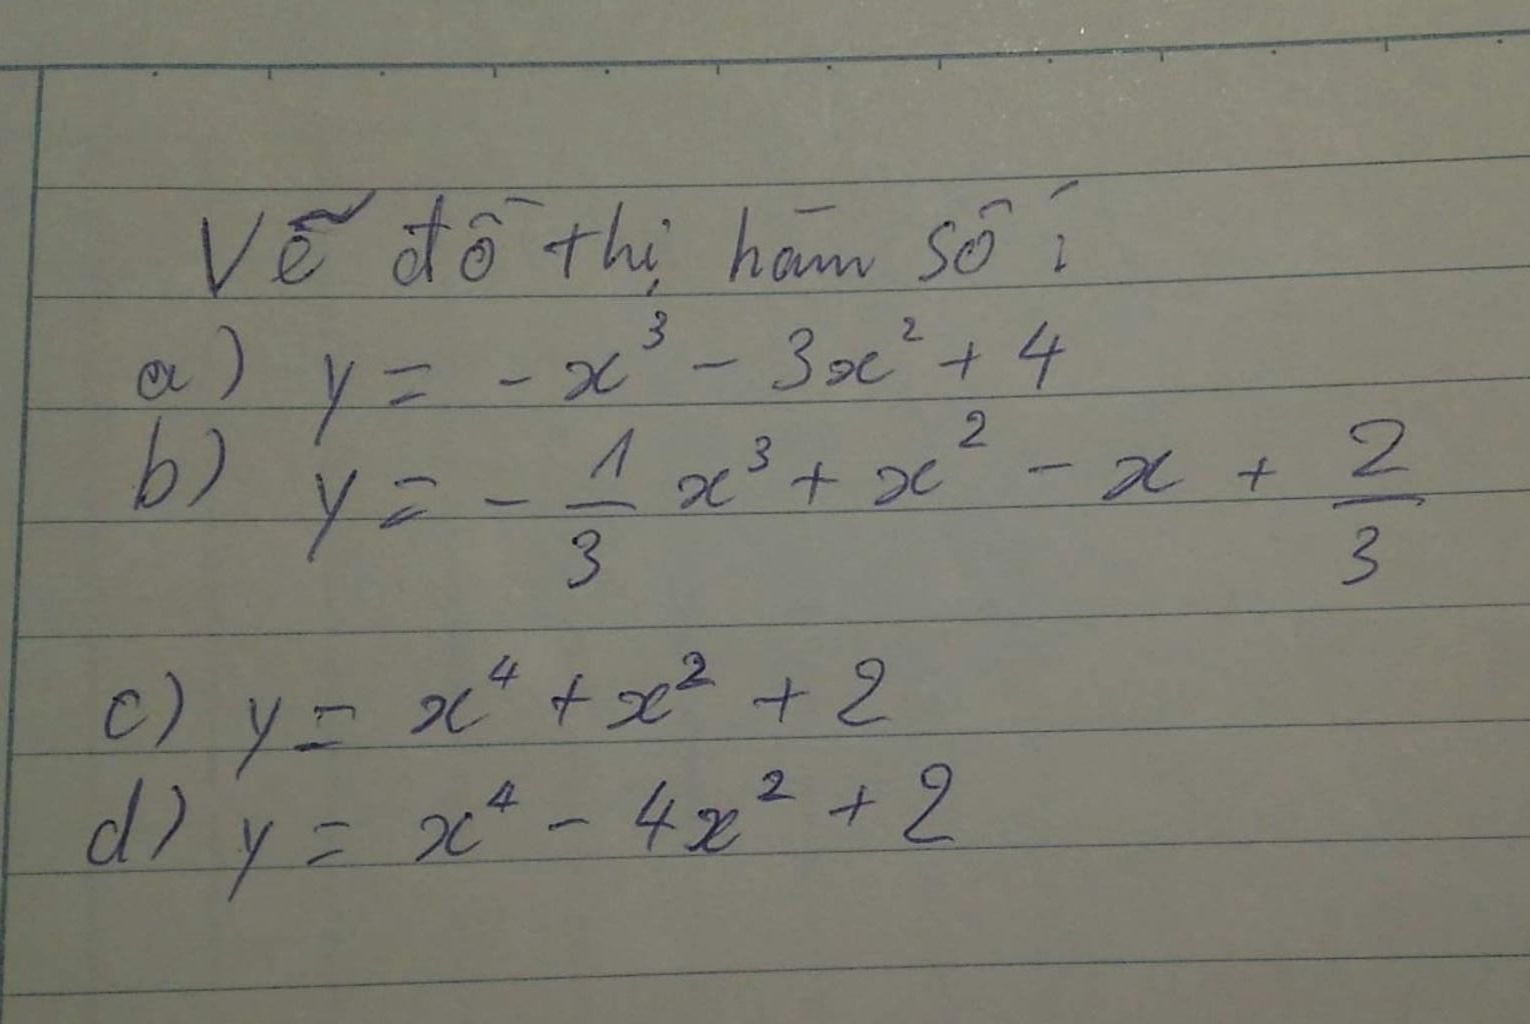 Vẽ đồ thị hàm số:
a) y = -x³ - 3x² + 4
b) y = -1/3 x³ + x² - x + 2/3
c) y = x⁴ + x² + 2
d) y = x⁴ - 4x² + 2